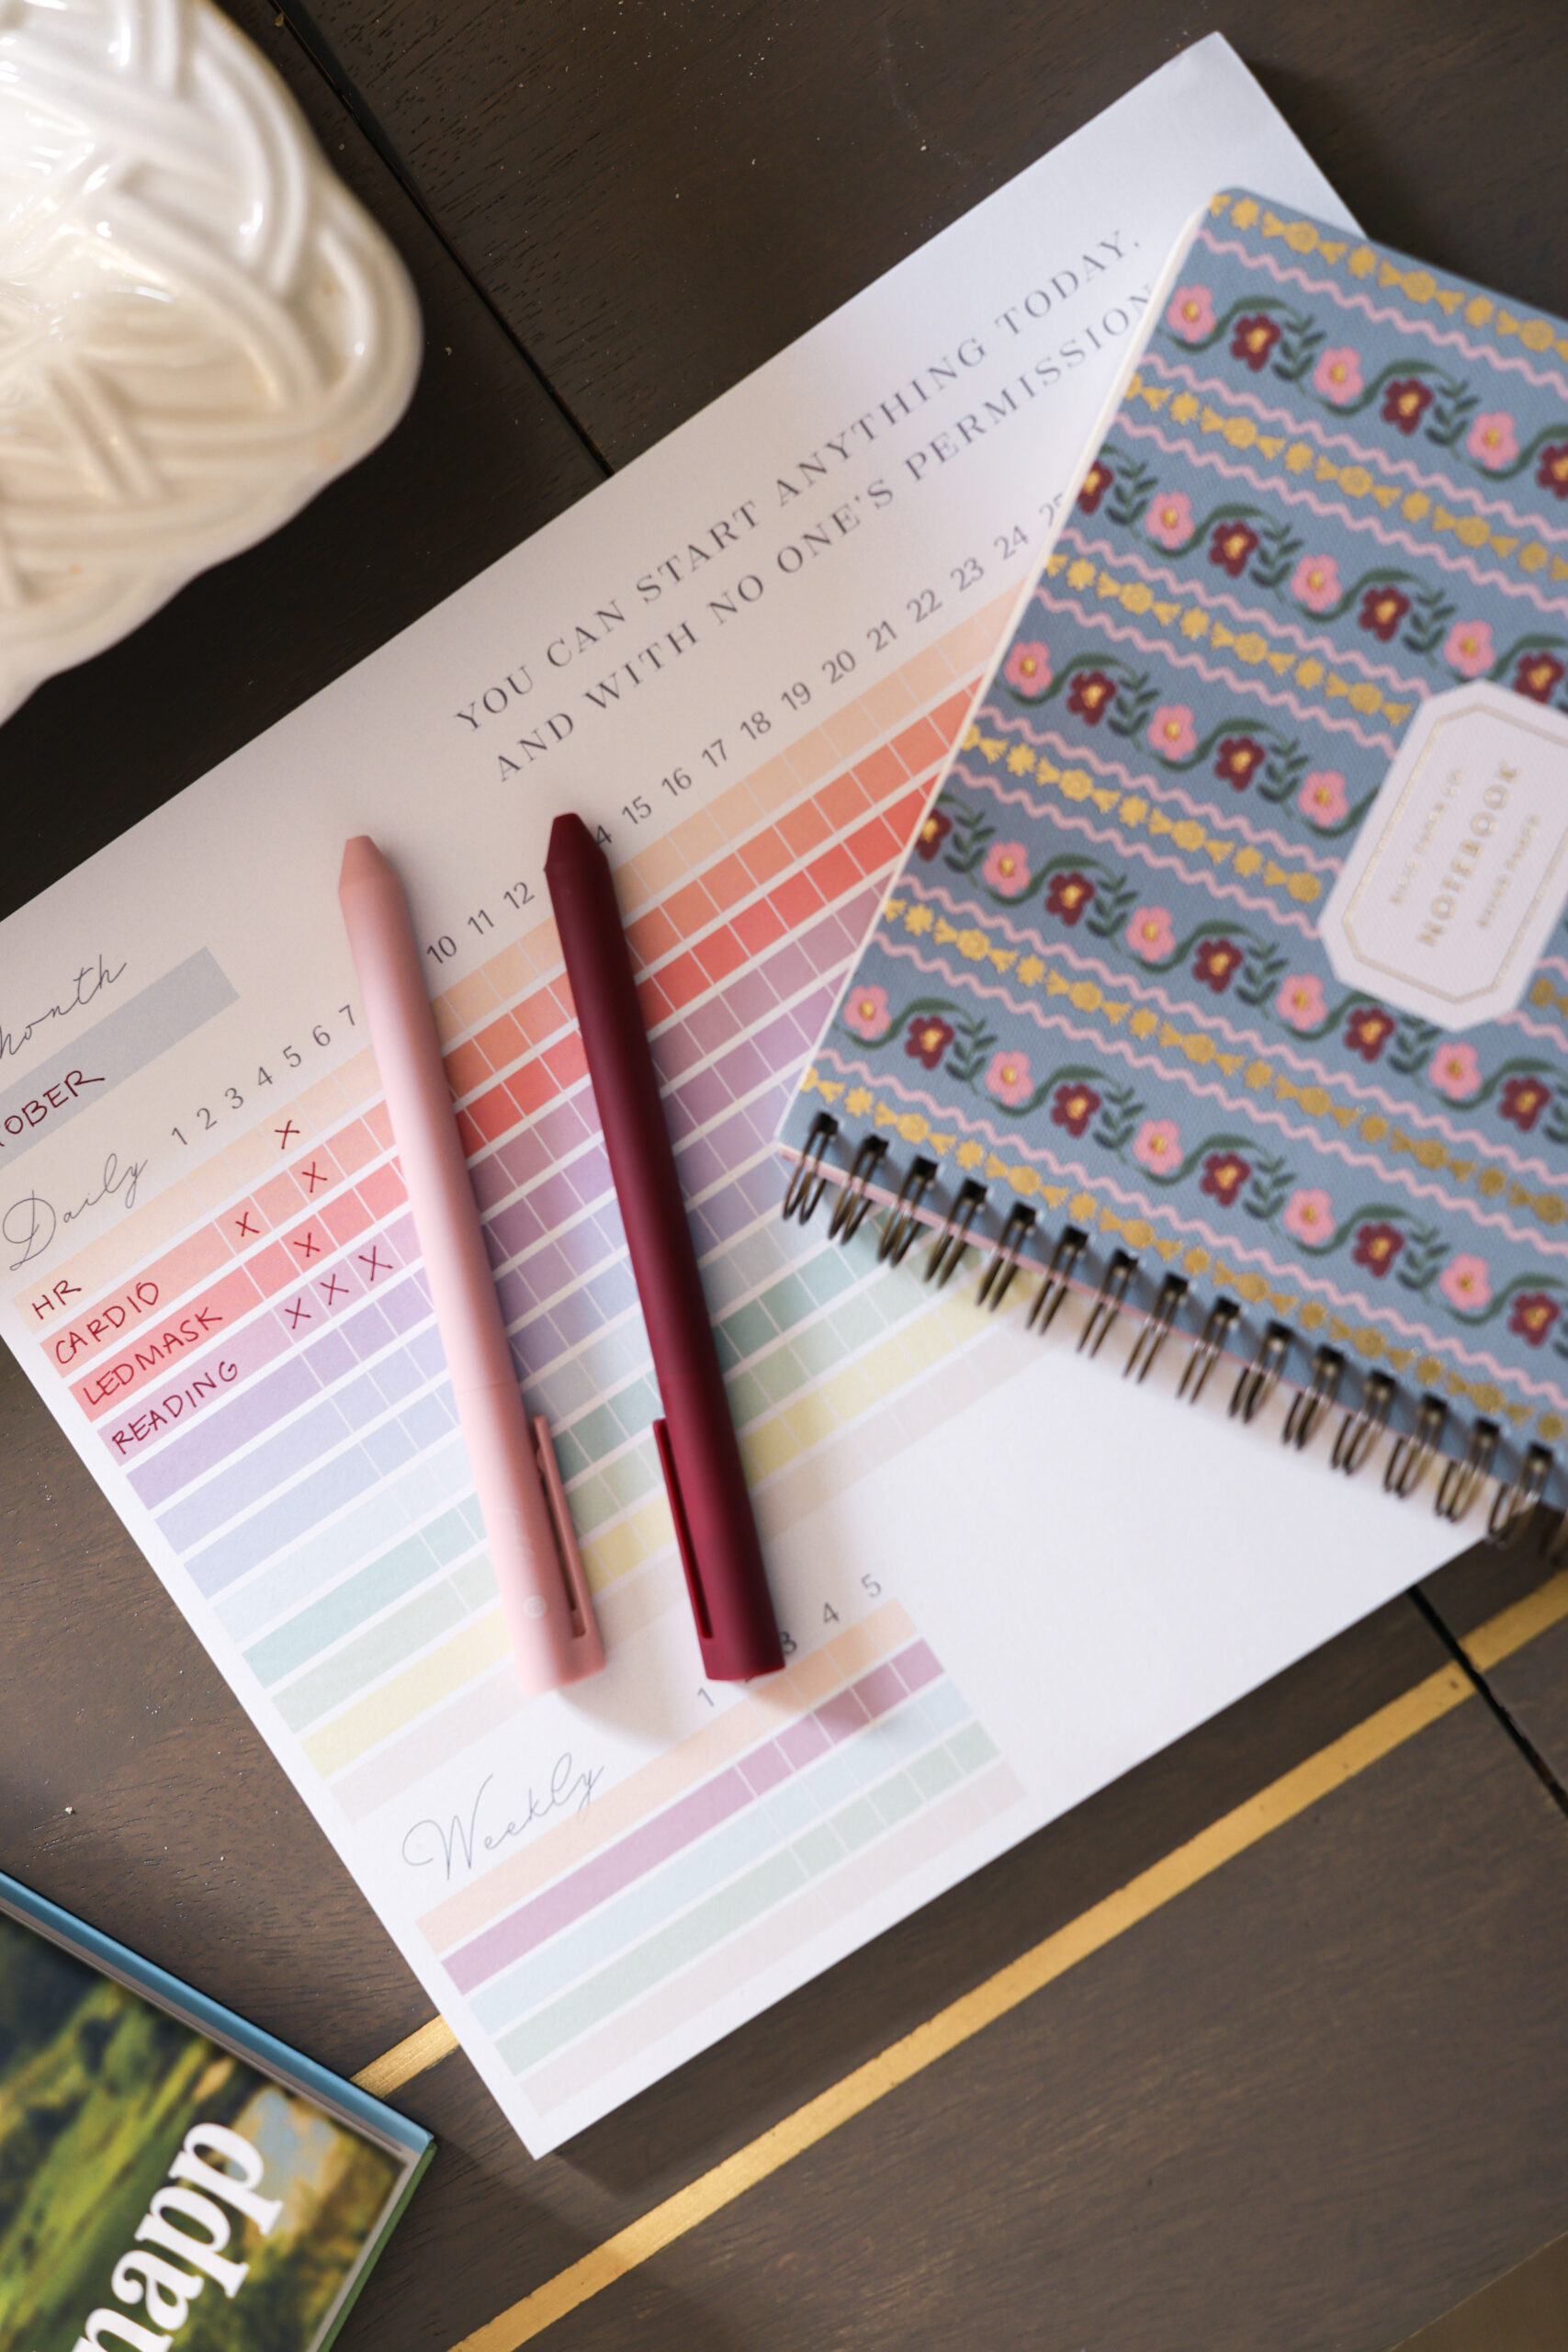 YOU CAN START ANYTHING TODAY.
AND WITH NO ONE'S PERMISSION
month
OBER
Daily
1 2 3 4 5 6 7 10 11 12 4 15 16 17 18 19 20 21 22 23 24 25
X
HR
X
CARDIO X
LED MASK X
READING X X X
Weekly
1 3 4 5
NOTEBOOK
napp